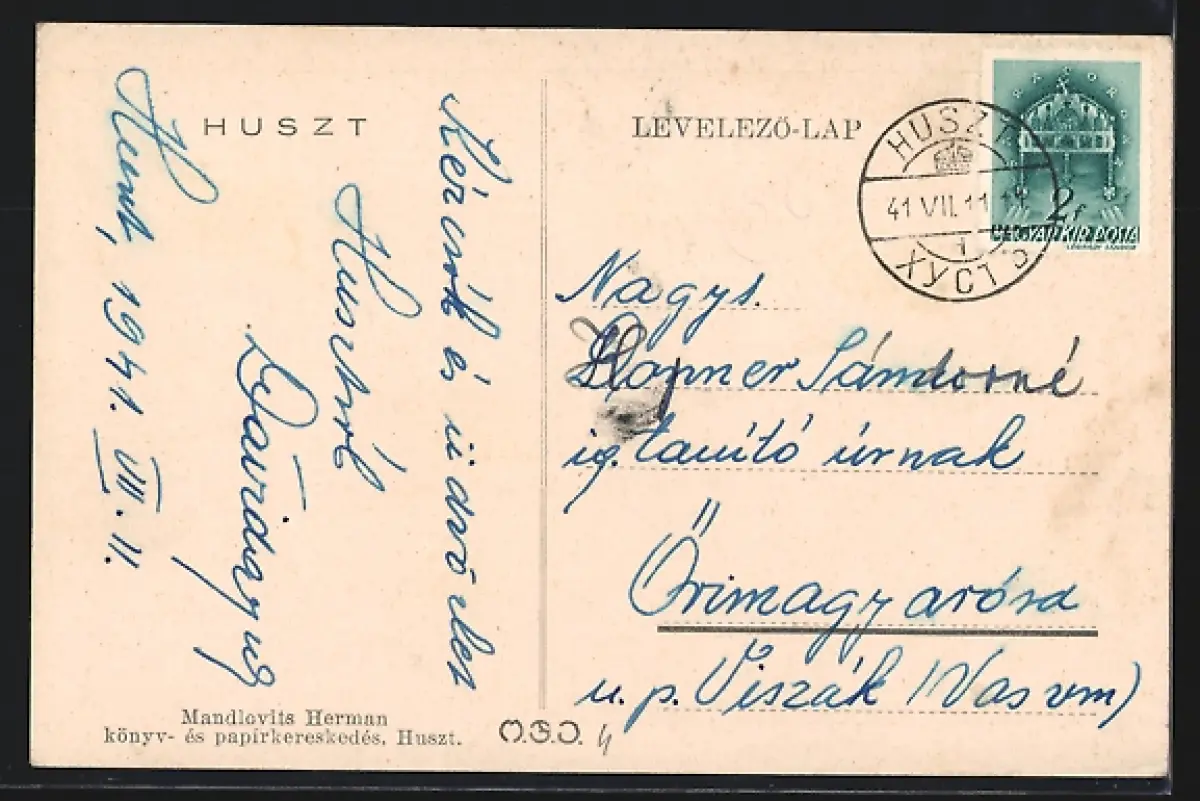 HUSZT
Huszt, 1941. VII. 11.
Kézcsók és üdvözlet
Husztról
LEVELEZŐ-LAP
HUSZT
41 VII.11
ХУСТ
2f
MAGYAR KIR. POSTA
Nagys.
Sándorné
ig. tanító úrnak
Őrimagyarósd
u. p. Viszák (Vas vm)
Mandlovits Herman
könyv- és papírkereskedés, Huszt.